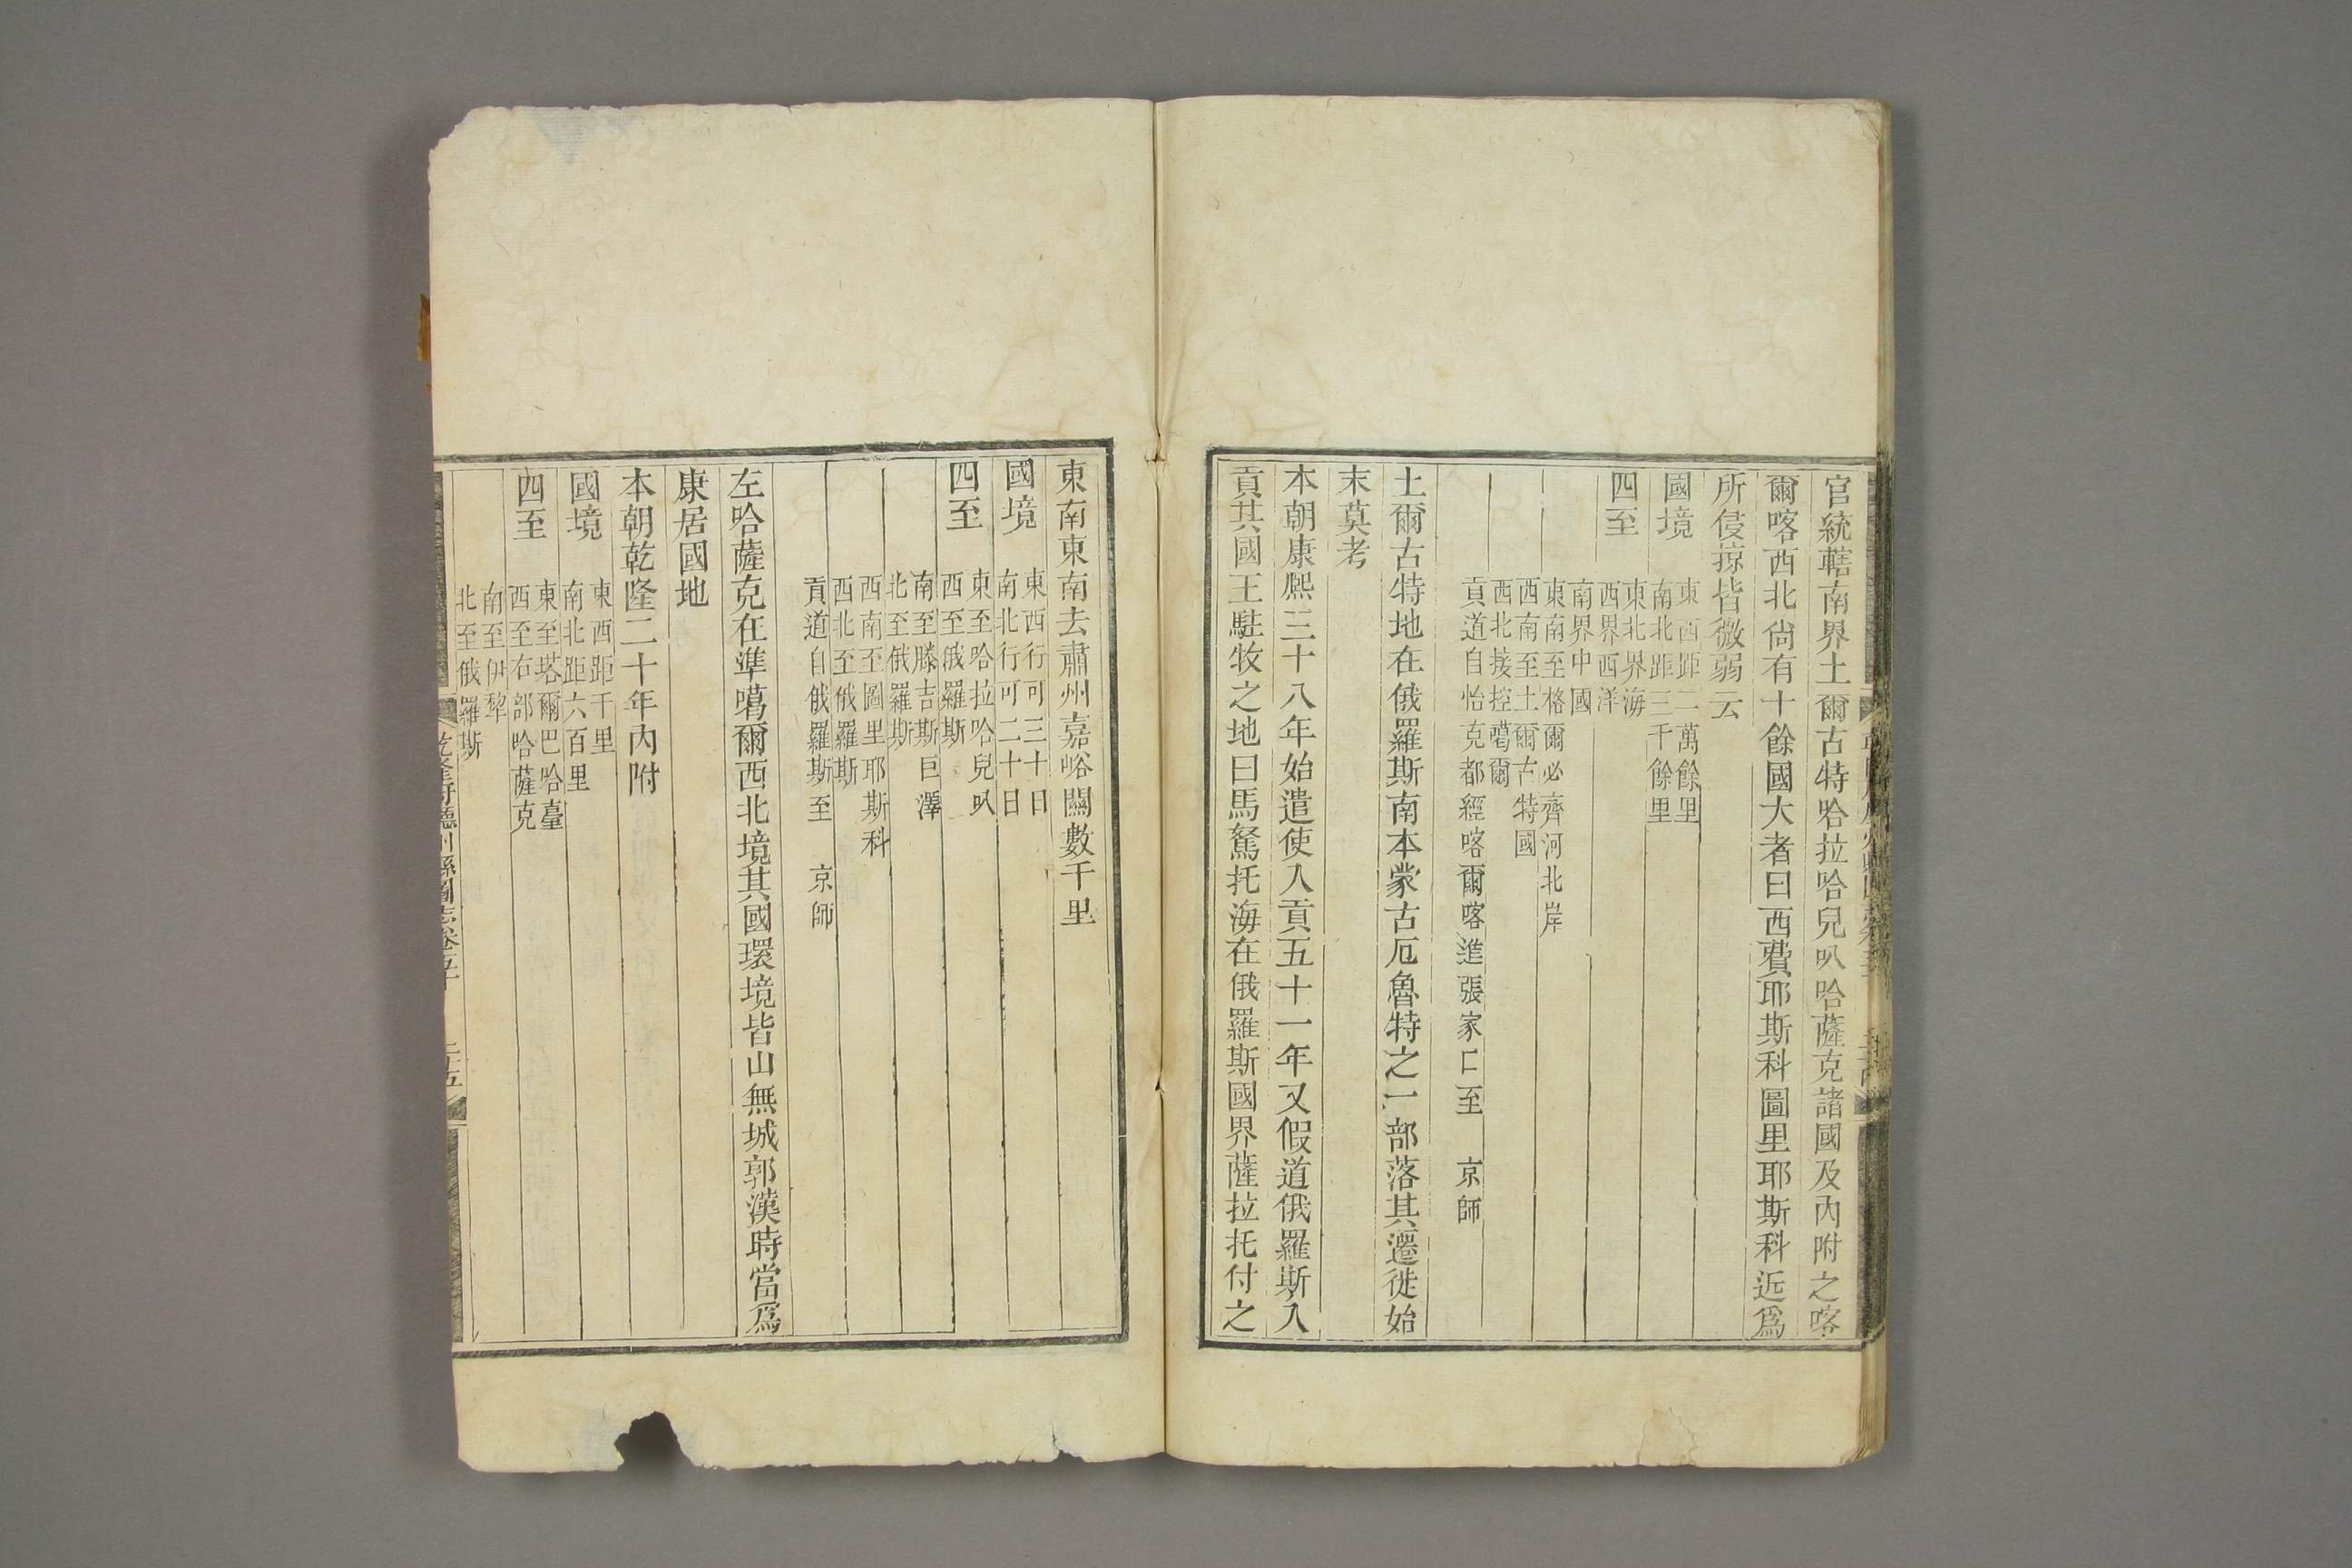 官統轄南界土爾古特哈拉哈兒叭哈薩克諸國及內附之喀
爾喀西北尚有十餘國大者曰西費耶斯科圖里耶斯科近爲
所侵掠皆微弱云
國境
東西距二萬餘里
南北距三千餘里
四至
東北界海
西界西洋
南界中國
東南至格爾必齊河北岸
西南至土爾古特國
西北接控噶爾
貢道自恰克都經喀爾喀進張家口至 京師
土爾古特地在俄羅斯南本蒙古厄魯特之一部落其遷徙始
末莫考
本朝康熙三十八年始遣使入貢五十一年又假道俄羅斯入
貢其國王駐牧之地曰馬駑托海在俄羅斯國界薩拉托付之
東南東南去肅州嘉峪關數千里
國境
東西行可三十日
南北行可二十日
四至
東至哈拉哈兒叭
西至俄羅斯
南至滕吉斯巨澤
北至俄羅斯
西南至圖里耶斯科
西北至俄羅斯
貢道自俄羅斯至 京師
左哈薩克在準噶爾西北境其國環境皆山無城郭漢時當爲
康居國地
本朝乾隆二十年內附
國境
東西距千里
南北距六百里
四至
東至塔爾巴哈臺
西至右部哈薩克
南至伊犂
北至俄羅斯
乾隆府廳州縣圖志卷五十